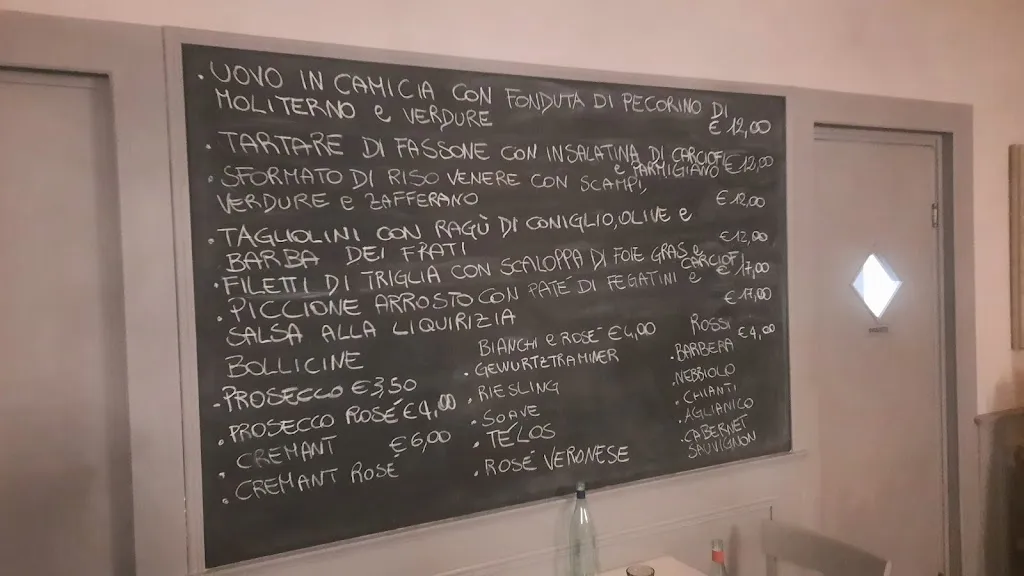 · UOVO IN CAMICIA CON FONDUTA DI PECORINO DI
MOLITERNO e VERDURE € 12,00
· TARTARE DI FASSONE CON INSALATINA DI CARCIOFI
e PARMIGIANO € 12,00
· SFORMATO DI RISO VENERE CON SCAMPI,
VERDURE e ZAFFERANO € 12,00
· TAGLIOLINI CON RAGÙ DI CONIGLIO, OLIVE e
BARBA DEI FRATI € 12,00
· FILETTI DI TRIGLIA CON SCALOPPA DI FOIE GRAS e
CARCIOFI € 17,00
· PICCIONE ARROSTO CON PATE DI FEGATINI e
SALSA ALLA LIQUIRIZIA € 17,00
BOLLICINE
· PROSECCO € 3,50
· PROSECCO ROSÉ € 4,00
· CREMANT € 6,00
· CREMANT ROSE
BIANCHI e ROSÉ € 4,00
· GEWURTZTRAMINER
· RIESLING
· SOAVE
· TÉLOS
· ROSÉ VERONESE
ROSSI
· BARBERA € 4,00
· NEBBIOLO
· CHIANTI
· AGLIANICO
· CABERNET
SAUVIGNON